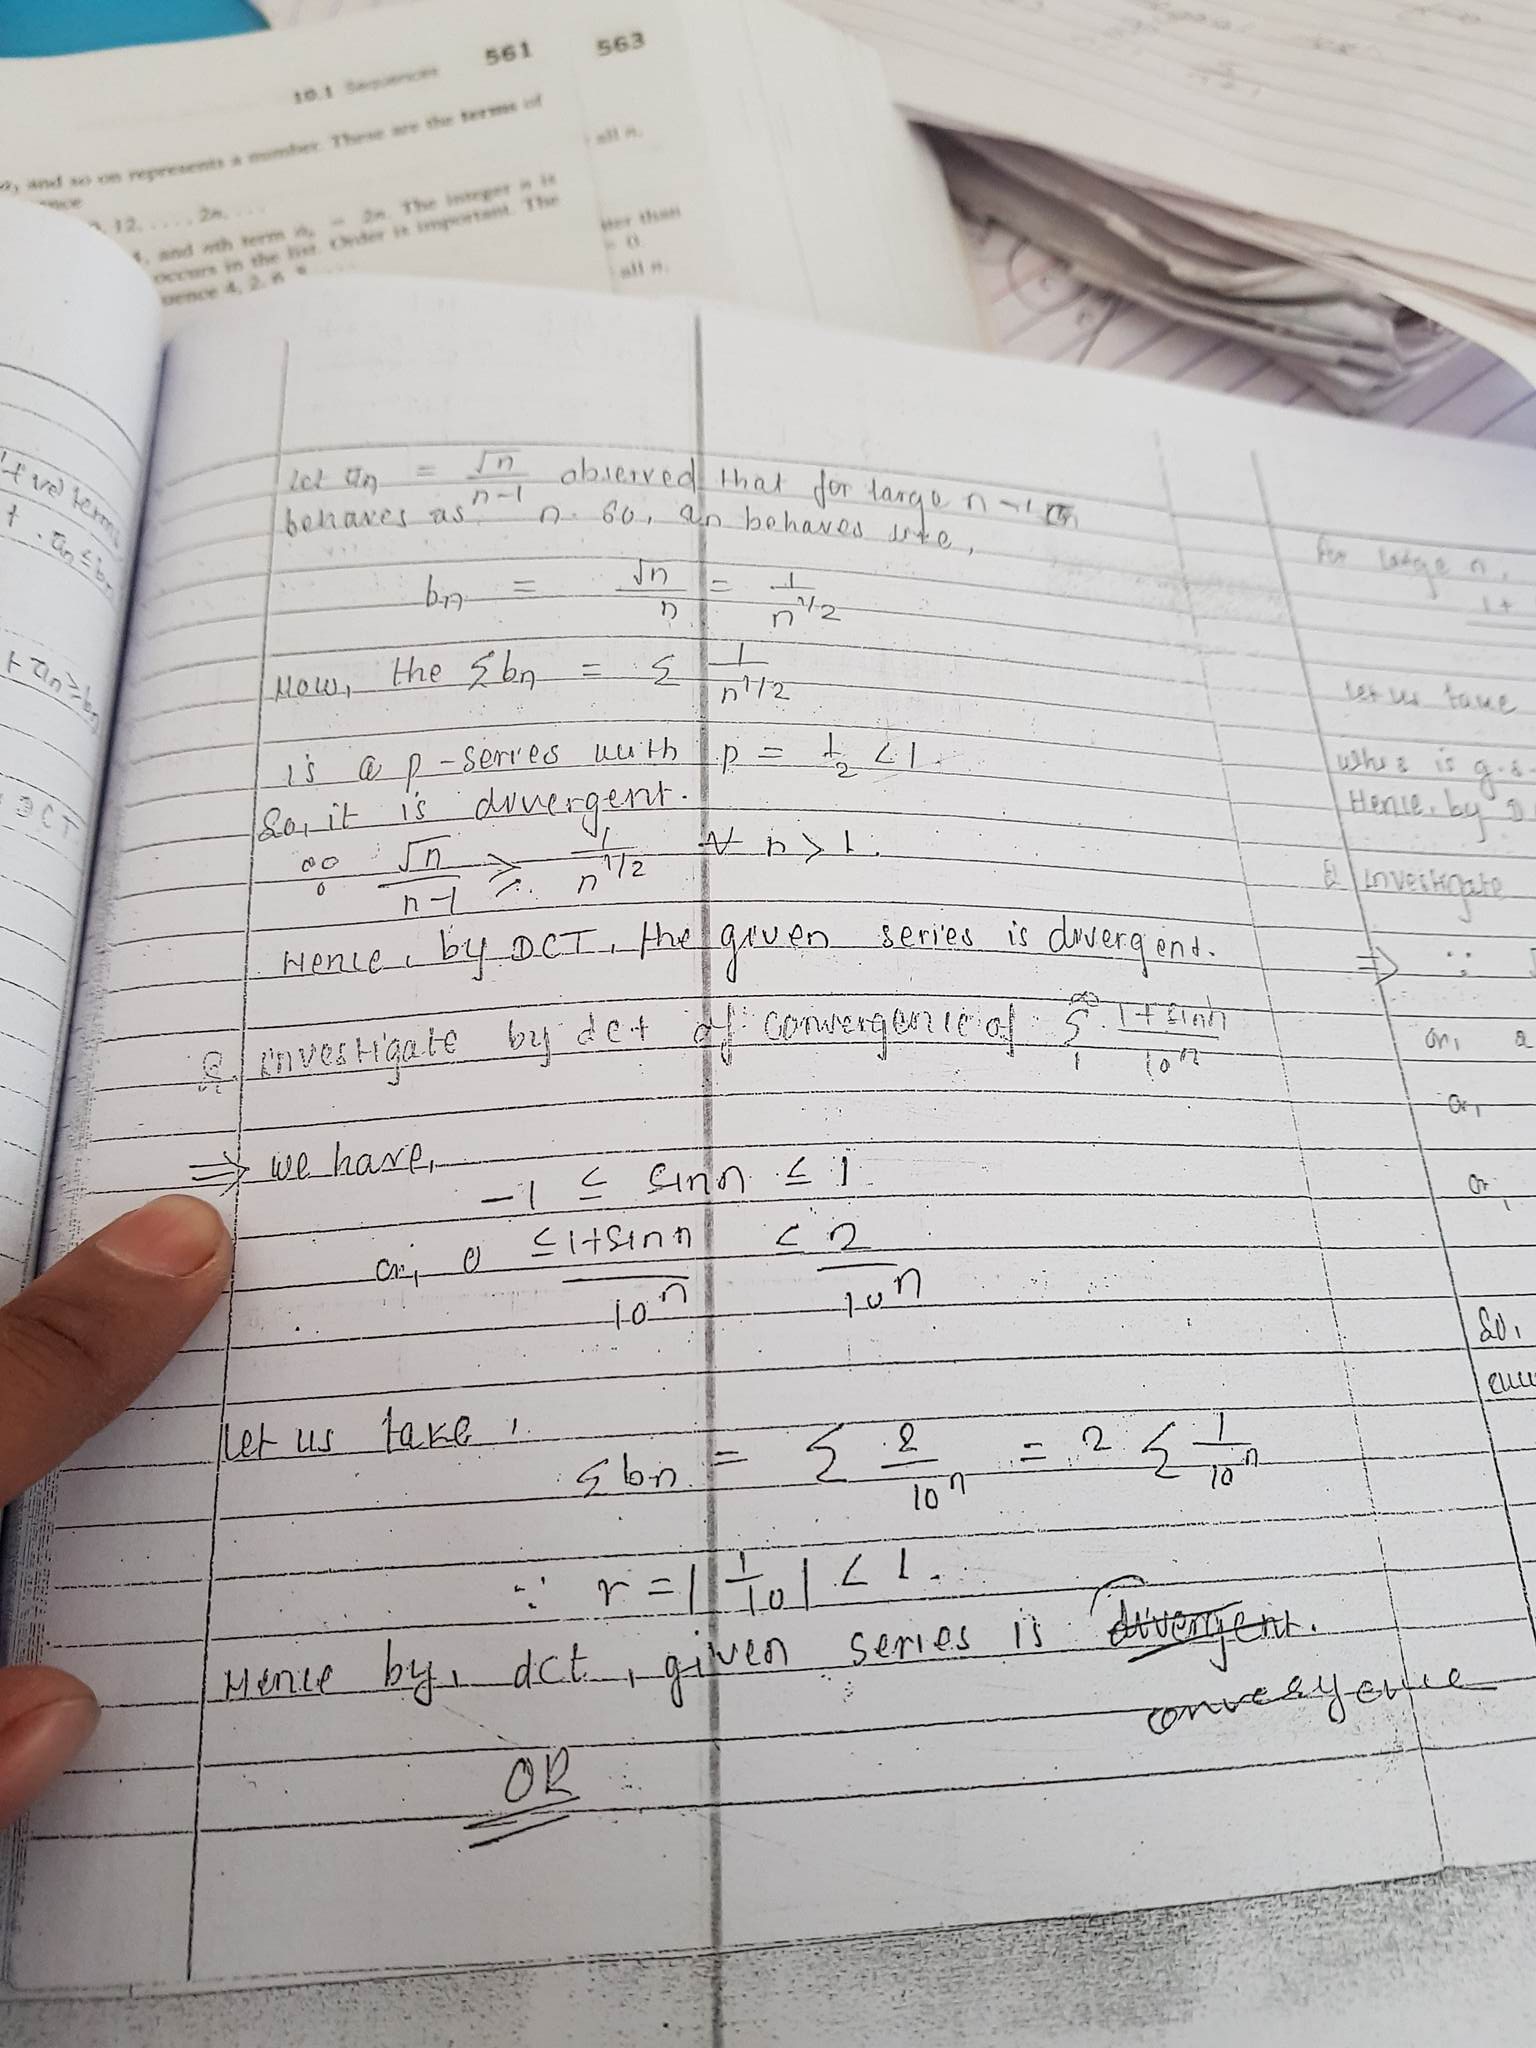 10.1 Sequences 561
and so on represents a number. These are the terms of
12, . . . , 2n, . . .
and nth term aₙ = 2n. The integer n is
occurs in the list. Order is important. The
uence 4, 2,
563
all n.
ter than
= 0.
all n.
Let an = √n/n-1 observed that for large n-1
behaves as n. So, an behaves like,
bn = √n/n = 1/n^1/2
Now, the Σbn = Σ 1/n^1/2
is a p-series with p = 1/2 < 1.
So, it is divergent.
∵ √n/n-1 ≥ 1/n^1/2 ∀ n > 1.
Hence, by DCT, the given series is divergent.
Q. Investigate by dct of convergence of ∞Σ1 1+sinn/10^n
⇒ we have,
-1 ≤ sinn ≤ 1
or, 0 ≤ 1+sinn/10^n ≤ 2/10^n
Let us take,
Σbn = Σ 2/10^n = 2 Σ 1/10^n
∵ r = |1/10| < 1.
Hence by, dct, given series is divergent.
convergence
OR
+ve terms
an ≤ bn
+ an ≥ bn
DCT
for large n,
1+
let us take
is g.s.
Hence, by D
Q Investigate
⇒ ∵
or, a
or,
or,
So,